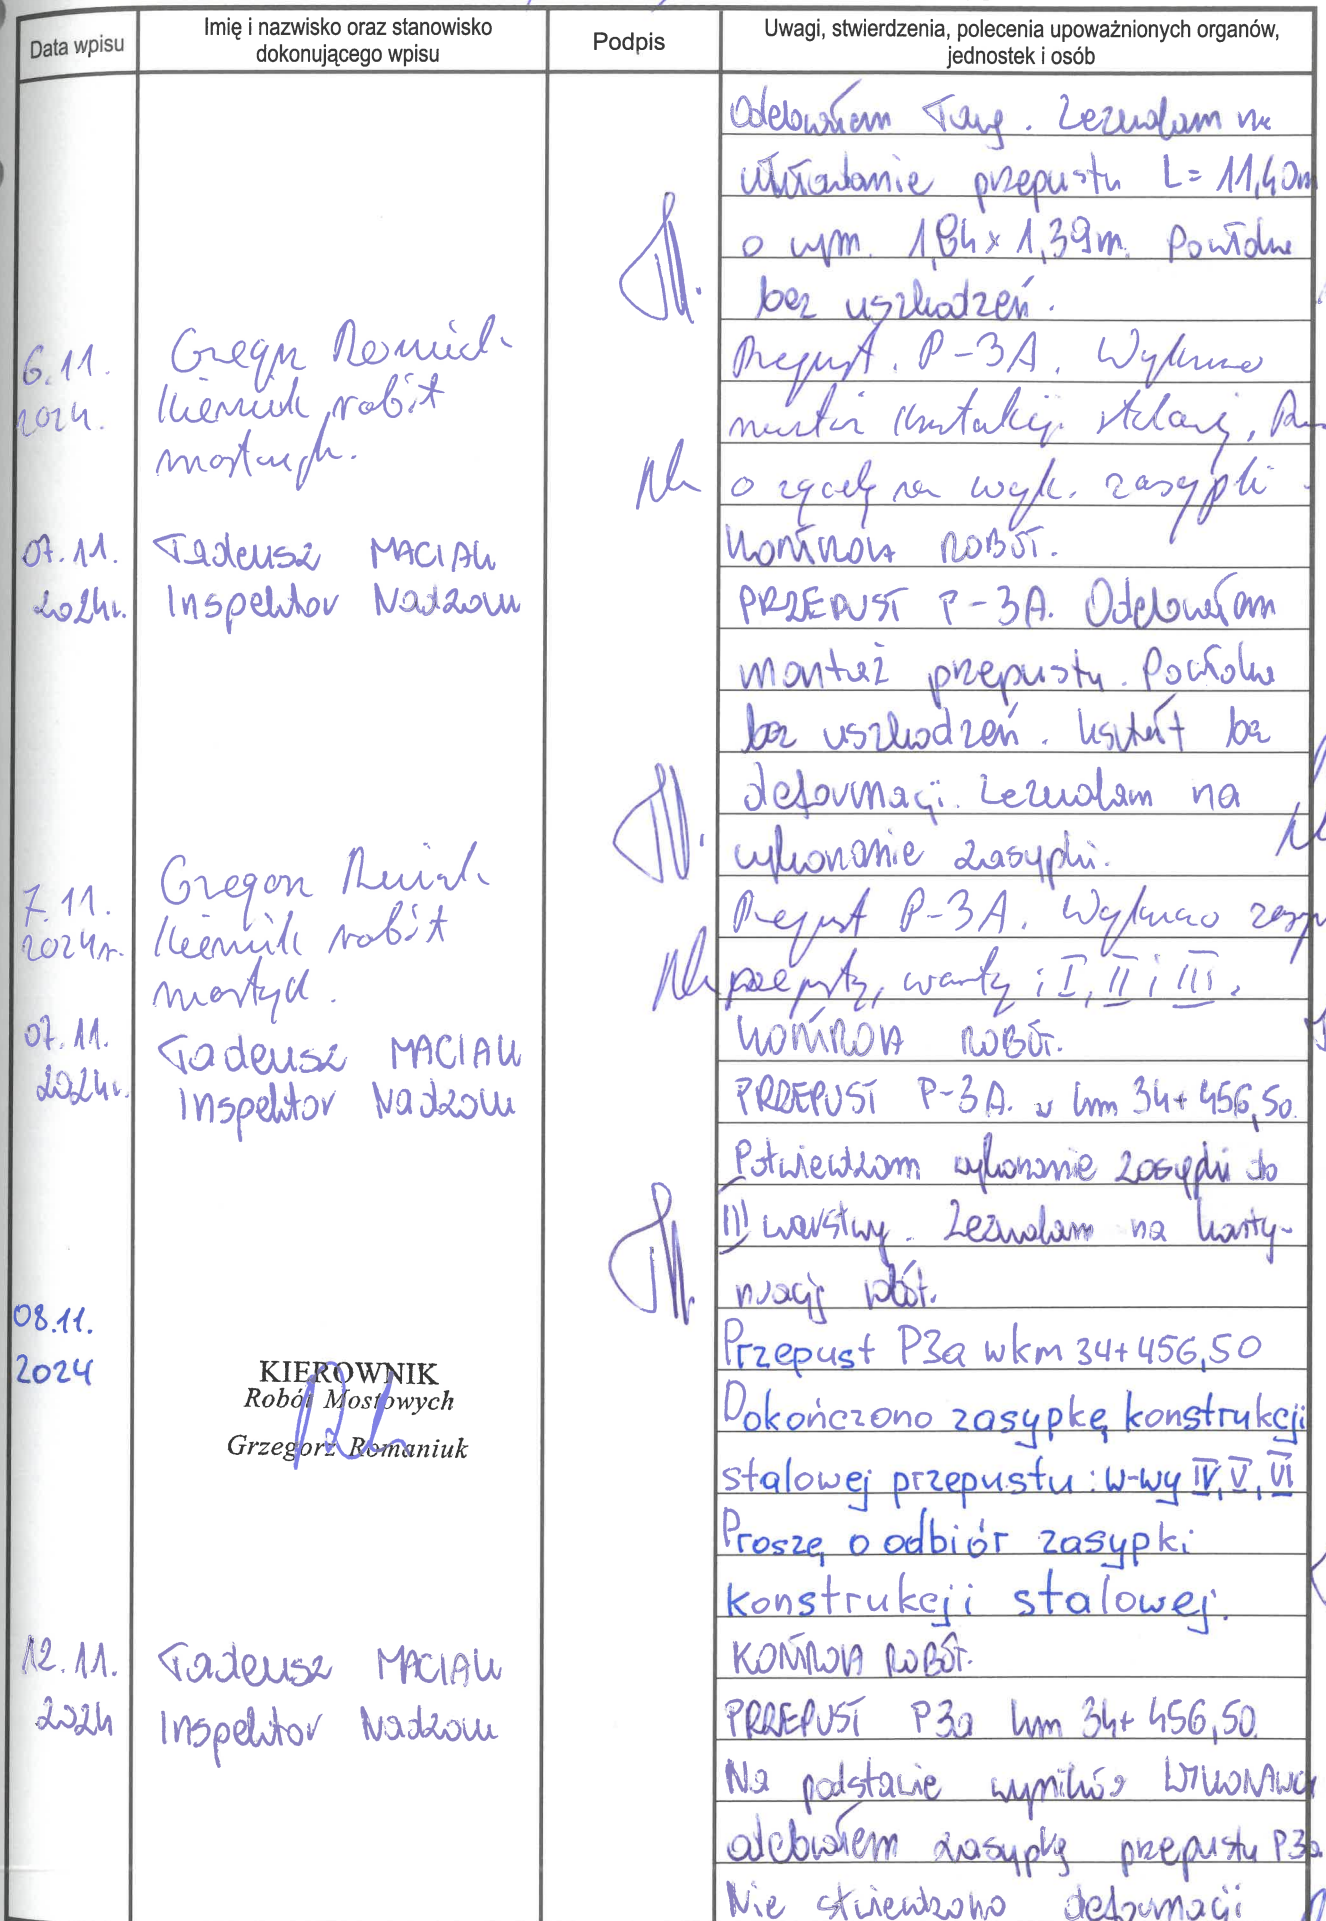 Data wpisu
Imię i nazwisko oraz stanowisko
dokonującego wpisu
Podpis
Uwagi, stwierdzenia, polecenia upoważnionych organów,
jednostek i osób
Odebrałem Ławę. Zezwalam na
układanie przepustu L= 11,40m
o wym. 1,84 x 1,39m. Powłoka
bez uszkodzeń.
6.11.
2024.
Kierownik robót
mostowych.
Przepust. P-3A. Wykonano
montaż konstrukcji stalowej,
o zgodę na wyk. zasypki.
07.11.
2024r.
Tadeusz MACIAK
Inspektor Nadzoru
KONTROLA ROBÓT.
PRZEPUST P-3A. Odebrałem
montaż przepustu. Powłoka
bez uszkodzeń. kształt bez
deformacji. Zezwalam na
wykonanie zasypki.
7.11.
2024r.
Kierownik robót
mostowych.
Przepust P-3A. Wykonano
przepustu, warstwy: I, II i III.
07.11.
2024r.
Tadeusz MACIAK
Inspektor Nadzoru
KONTROLA ROBÓT.
PRZEPUST P-3A. w km 34+456,50.
Potwierdzam wykonanie zasypki do
III warstwy. Zezwalam na konty-
nuację robót.
08.11.
2024
KIEROWNIK
Robót Mostowych
Grzegorz Romaniuk
Przepust P3a w km 34+456,50
Dokończono zasypkę konstrukcji
stalowej przepustu: w-wy IV, V, VI
Proszę o odbiór zasypki
konstrukcji stalowej.
12.11.
2024
Tadeusz MACIAK
Inspektor Nadzoru
KONTROLA ROBÓT.
PRZEPUST P3a km 34+456,50.
Na podstawie wyników WYKONAWCY
odebrałem zasypkę przepustu P3a.
Nie stwierdzono deformacji